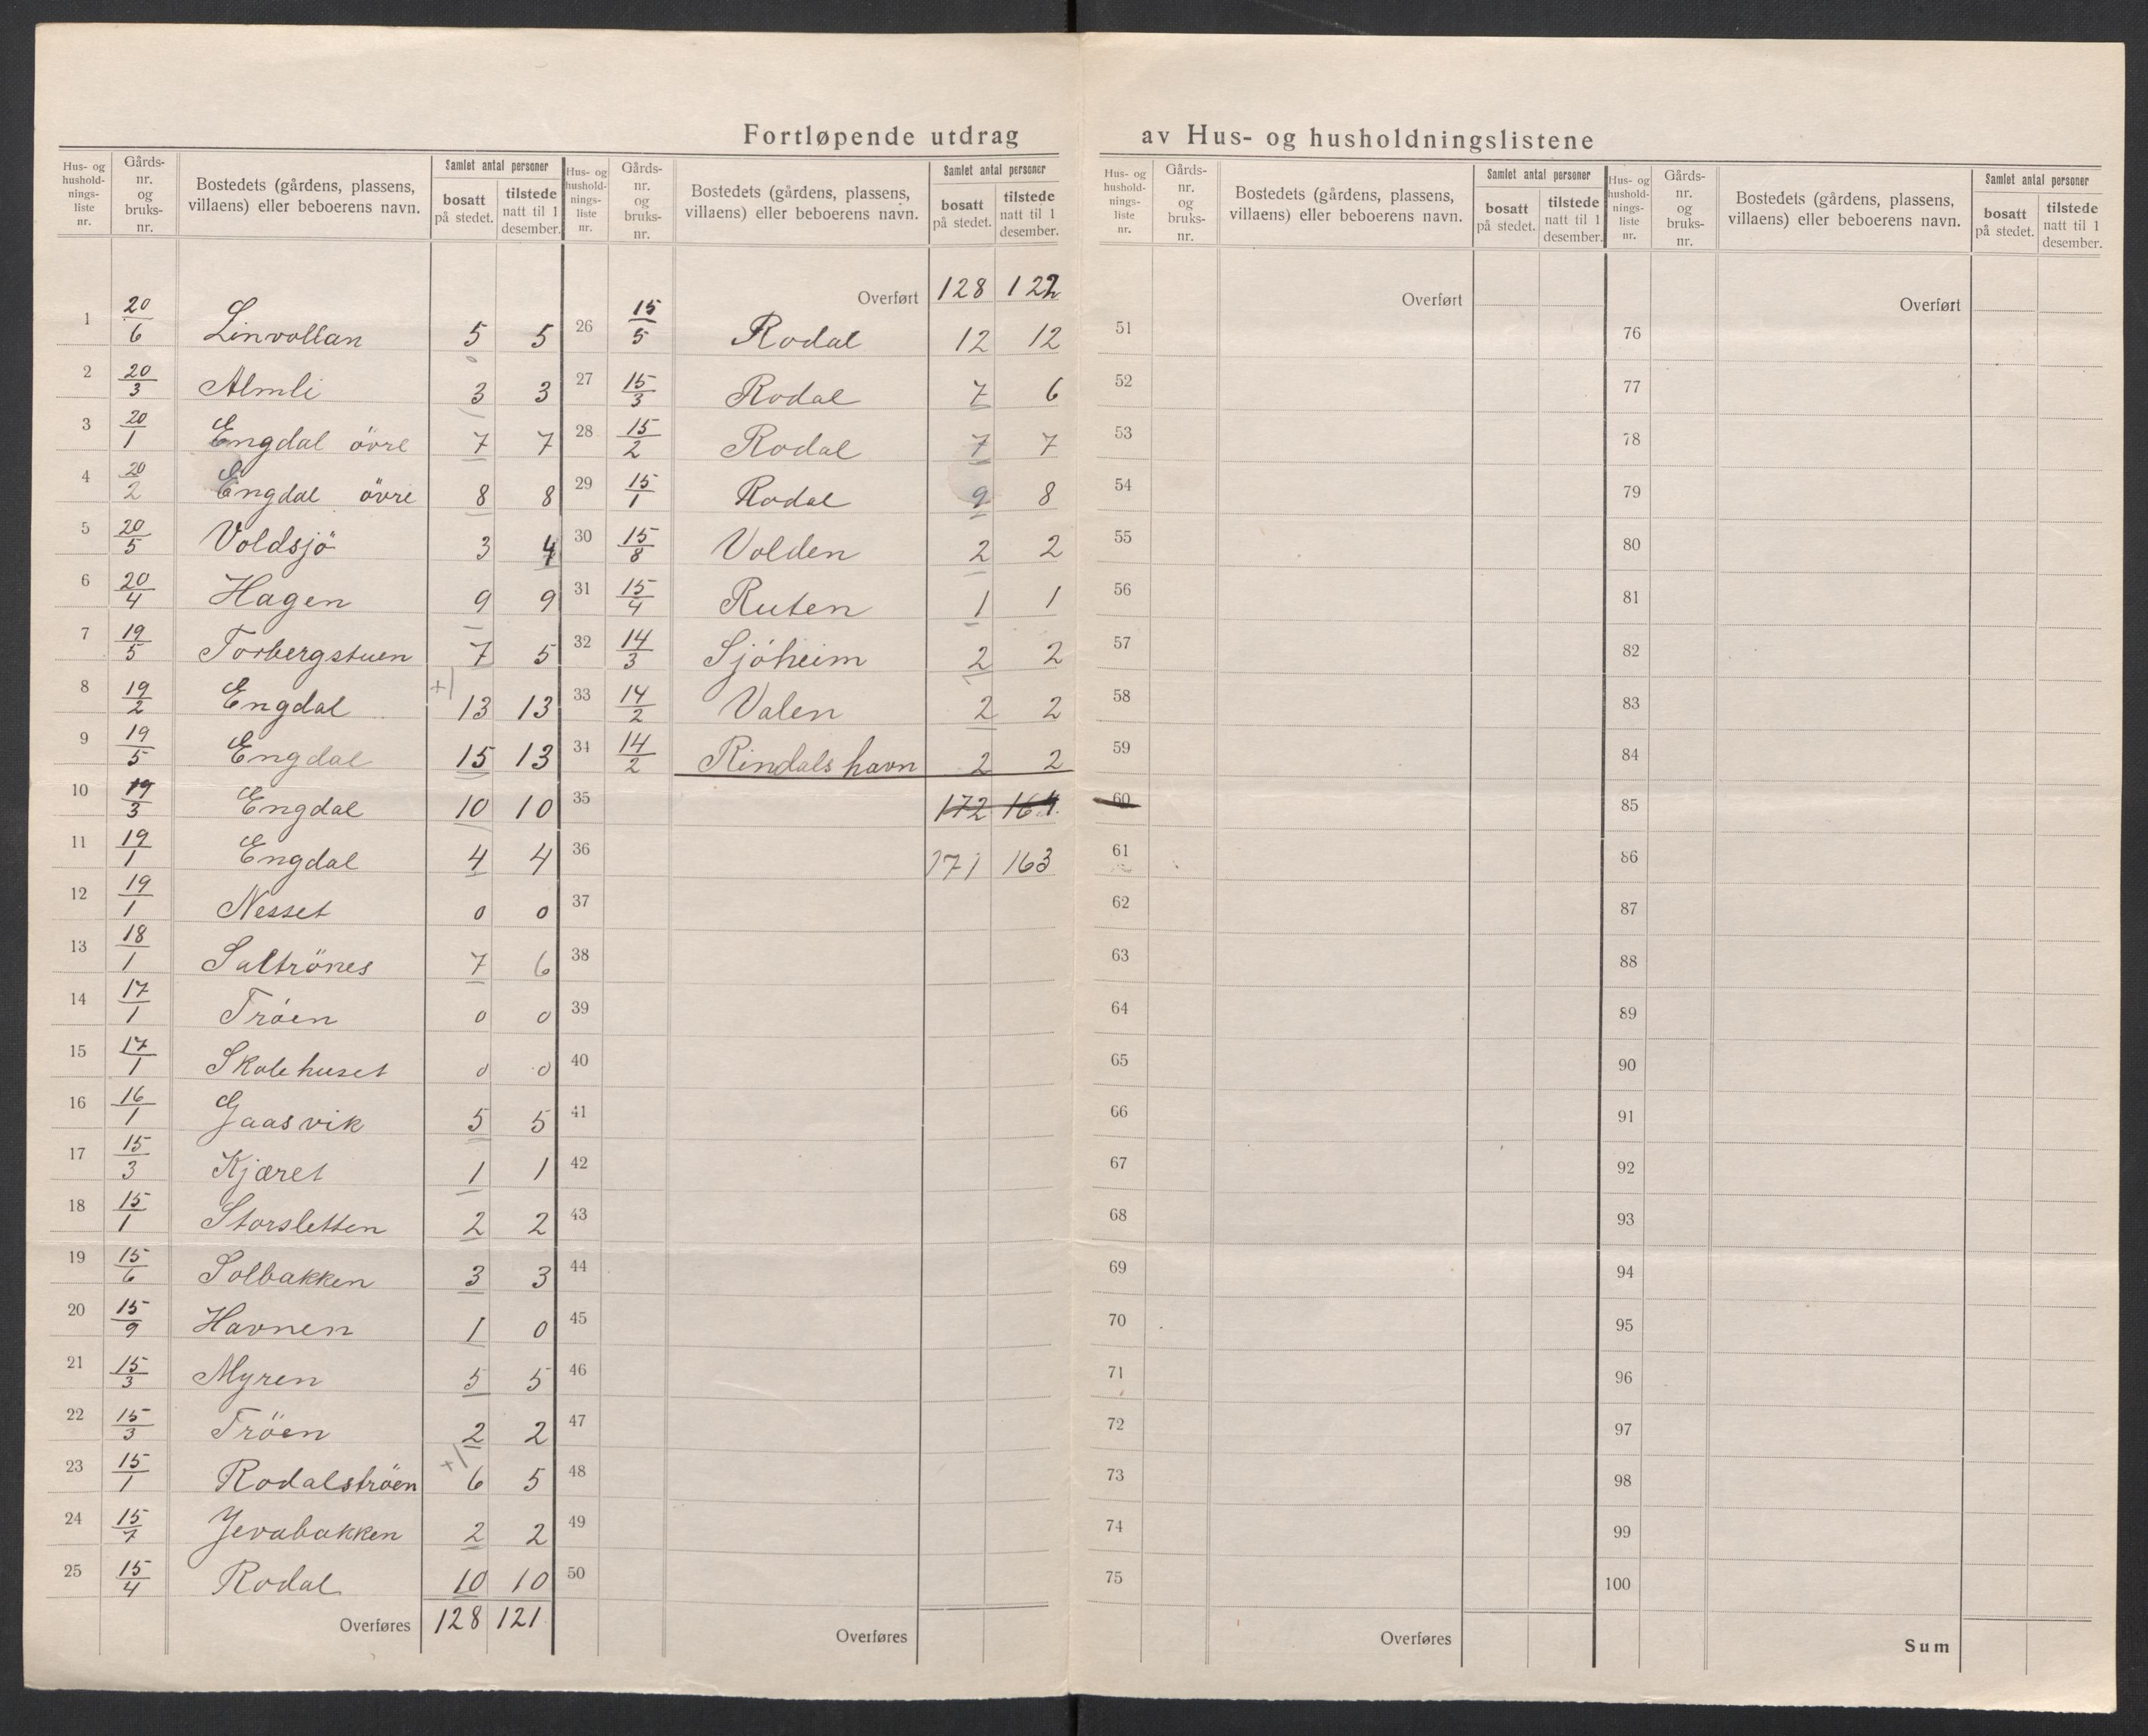 Fortløpende utdrag av Hus- og husholdningslistene
Hus- og hushold-nings-liste nr. | Gårds-nr. og bruks-nr. | Bostedets (gårdens, plassens, villaens) eller beboerens navn. | Samlet antal personer | bosatt på stedet. | tilstede natt til 1 desember.
1 20/6 Linvollan 5 5
2 20/3 Almli 3 3
3 20/1 Engdal övre 7 7
4 20/2 Engdal övre 8 8
5 20/5 Voldsjö 3 4
6 20/4 Hagen 9 9
7 19/5 Torbergstuen 7 5
8 19/2 Engdal +1 13 13
9 19/5 Engdal 15 13
10 19/3 Engdal 10 10
11 19/1 Engdal 4 4
12 19/1 Nesset 0 0
13 18/1 Saltrönes 7 6
14 17/1 Tröen 0 0
15 17/1 Skolehuset 0 0
16 16/1 Gaasvik 5 5
17 15/3 Kjæret 1 1
18 15/1 Storsletten 2 2
19 15/6 Solbakken 3 3
20 15/9 Havnen 1 0
21 15/3 Myren 5 5
22 15/3 Tröen 2 2
23 15/1 Rodalströen +1 6 5
24 15/7 Jevabakken 2 2
25 15/4 Rodal 10 10
Overføres 128 121
Hus- og hushold-nings-liste nr. | Gårds-nr. og bruks-nr. | Bostedets (gårdens, plassens, villaens) eller beboerens navn. | Samlet antal personer | bosatt på stedet. | tilstede natt til 1 desember.
Overført 128 122
26 15/5 Rodal 12 12
27 15/3 Rodal 7 6
28 15/2 Rodal 7 7
29 15/1 Rodal 9 8
30 15/8 Volden 2 2
31 15/4 Ruten 1 1
32 14/3 Sjöheim 2 2
33 14/2 Valen 2 2
34 14/2 Rindalshavn 2 2
35 172 164
36 171 163
37
38
39
40
41
42
43
44
45
46
47
48
49
50
Overføres
Hus- og hushold-nings-liste nr. | Gårds-nr. og bruks-nr. | Bostedets (gårdens, plassens, villaens) eller beboerens navn. | Samlet antal personer | bosatt på stedet. | tilstede natt til 1 desember.
Overført
51
52
53
54
55
56
57
58
59
60
61
62
63
64
65
66
67
68
69
70
71
72
73
74
75
Overføres
Hus- og hushold-nings-liste nr. | Gårds-nr. og bruks-nr. | Bostedets (gårdens, plassens, villaens) eller beboerens navn. | Samlet antal personer | bosatt på stedet. | tilstede natt til 1 desember.
Overført
76
77
78
79
80
81
82
83
84
85
86
87
88
89
90
91
92
93
94
95
96
97
98
99
100
Sum